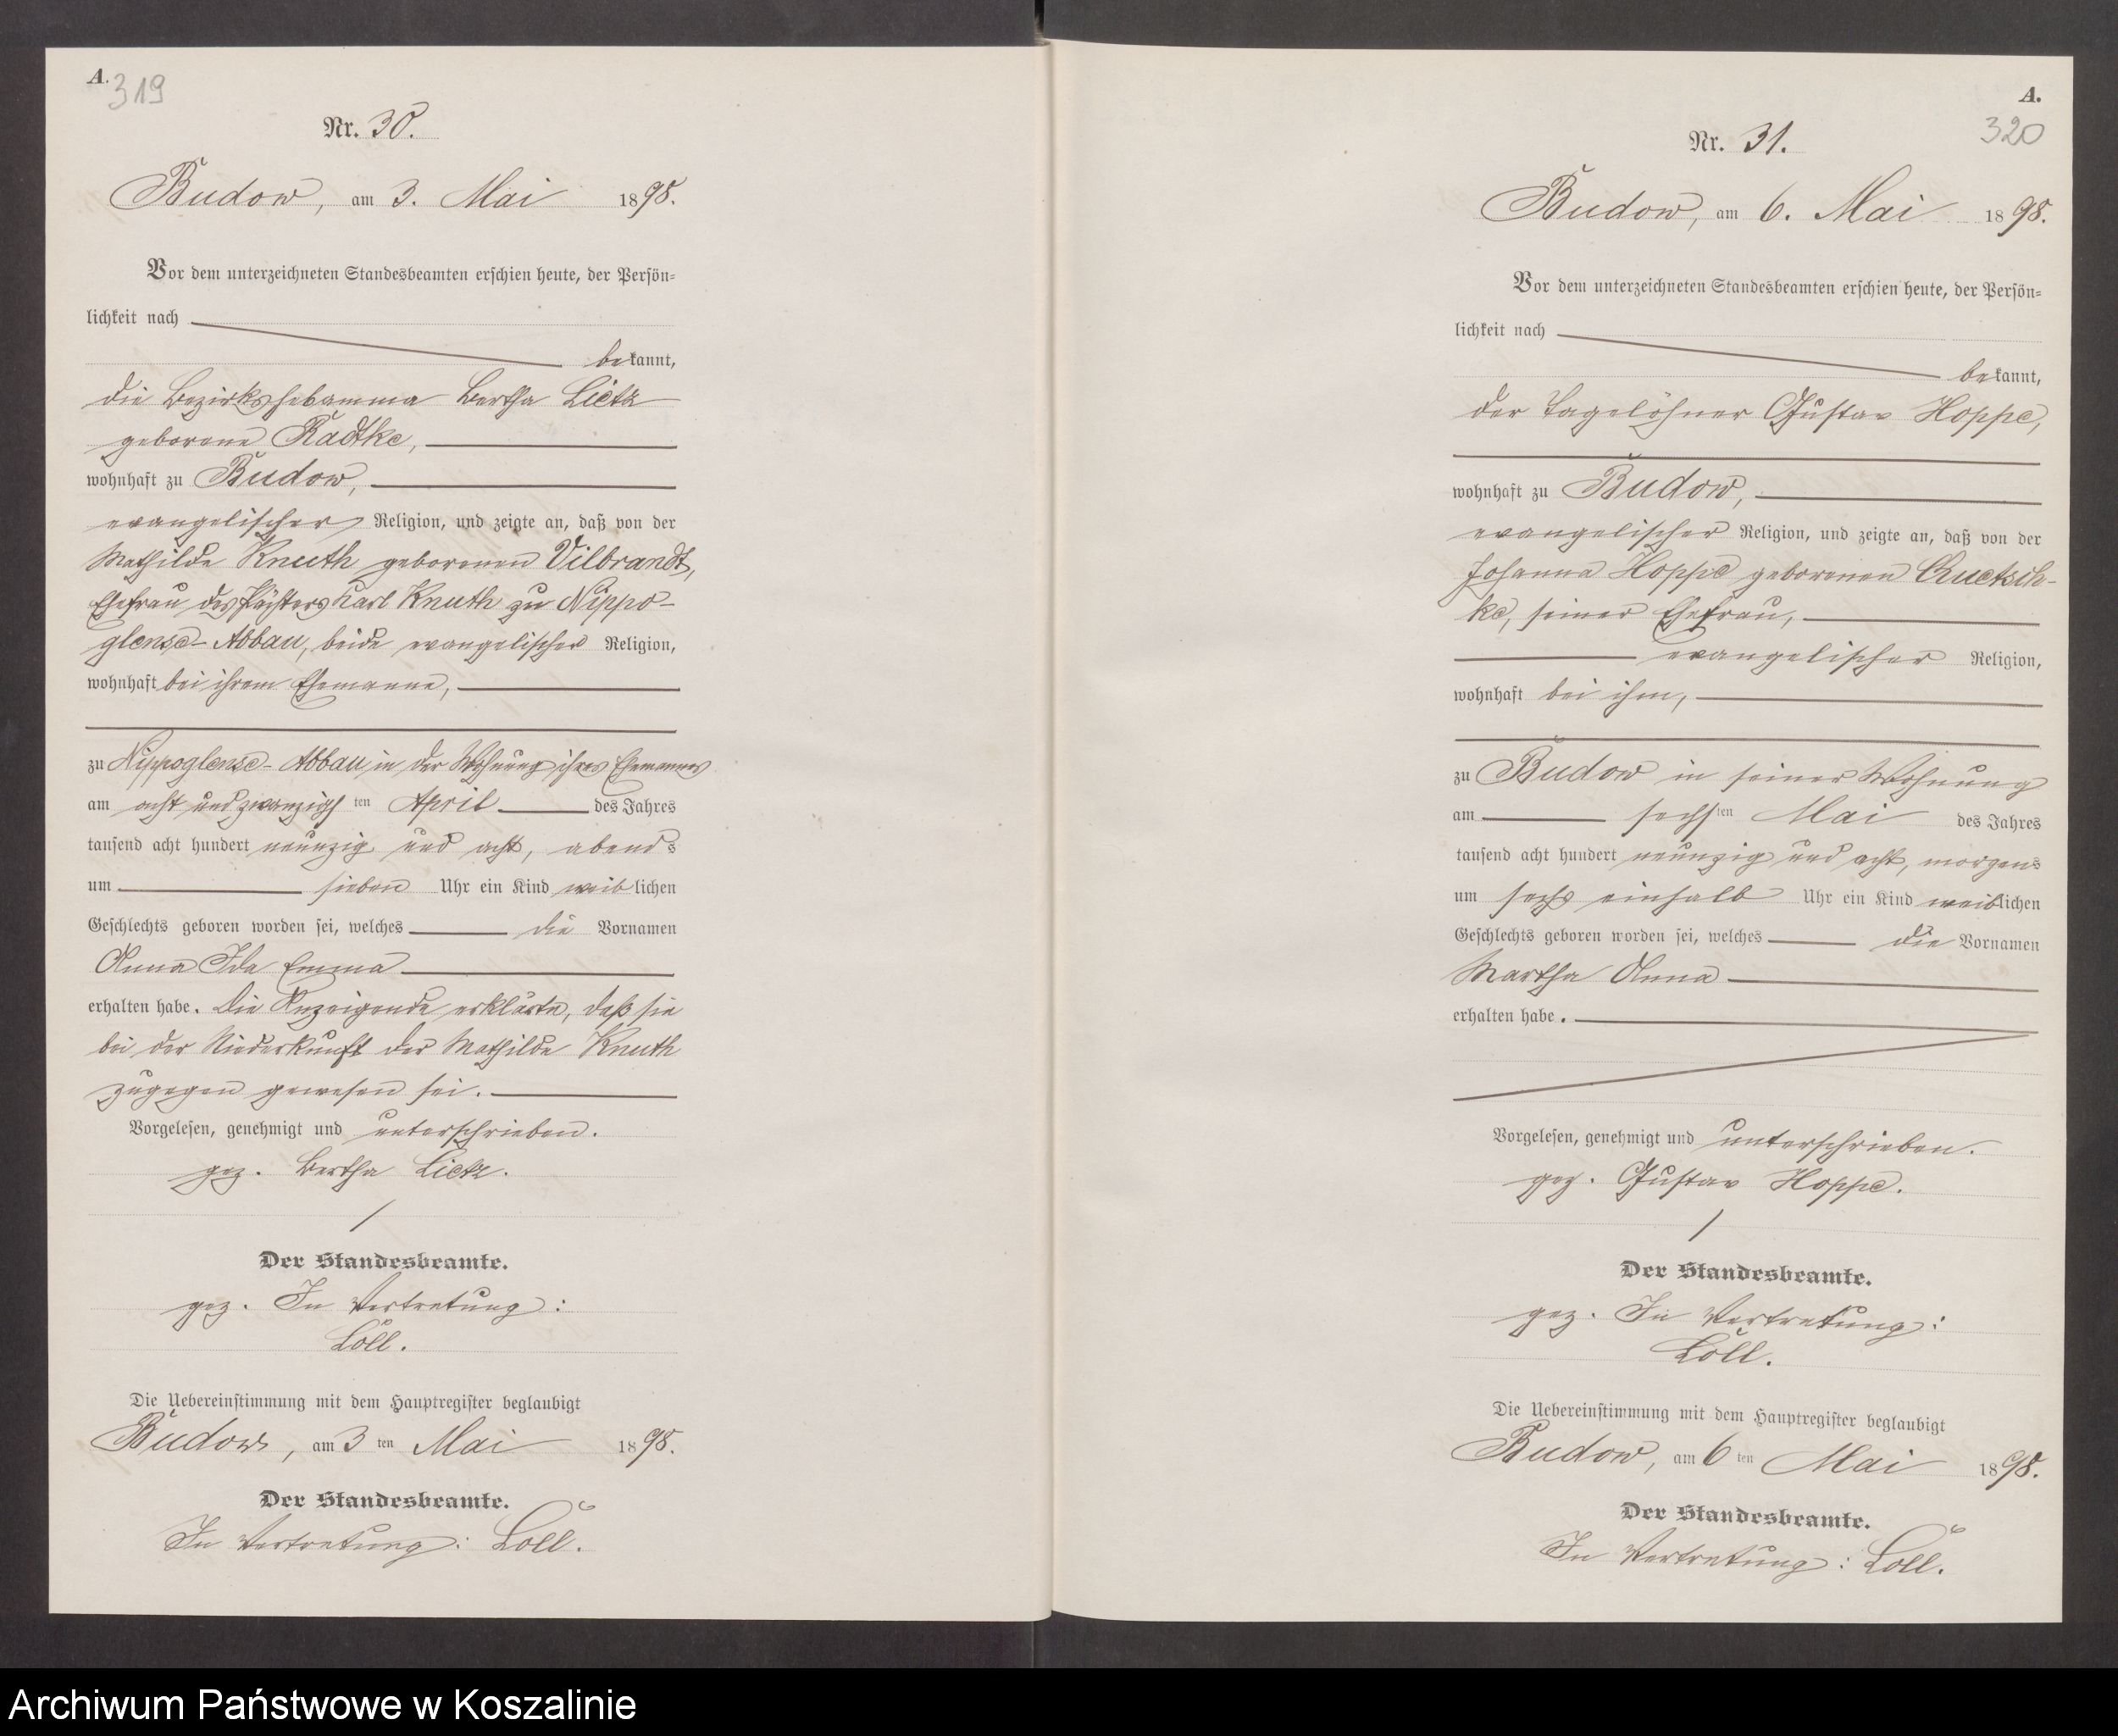 A.
319
Nr. 30.
Budow, am 3. Mai 1898.
Vor dem unterzeichneten Standesbeamten erschien heute, der Persön-
lichkeit nach
bekannt,
die Bezirkshebamme Bertha Lietz
geborene Radtke,
wohnhaft zu Budow,
evangelischer Religion, und zeigte an, daß von der
Mathilde Knuth geborenen Vilbrandt,
Ehefrau des Pächters Karl Knuth zu Nippo-
glense-Abbau, beide evangelischer Religion,
wohnhaft bei ihrem Ehemanne,
zu Nippoglense-Abbau in der Wohnung ihres Ehemannes
am acht und zwanzigsten April des Jahres
tausend acht hundert neunzig und acht, abends
um sieben Uhr ein Kind weiblichen
Geschlechts geboren worden sei, welches die Vornamen
Anna Ida Emma
erhalten habe. Die Anzeigende erklärte, daß sie
bei der Niederkunft der Mathilde Knuth
zugegen gewesen sei.
Vorgelesen, genehmigt und unterschrieben.
gez. Bertha Lietz.
Der Standesbeamte.
gez. In Vertretung:
Löll.
Die Uebereinstimmung mit dem Hauptregister beglaubigt
Budow, am 3ten Mai 1898.
Der Standesbeamte.
In Vertretung: Löll.
A.
320
Nr. 31.
Budow, am 6. Mai 1898.
Vor dem unterzeichneten Standesbeamten erschien heute, der Persön-
lichkeit nach
bekannt,
der Tagelöhner Gustav Hoppe,
wohnhaft zu Budow,
evangelischer Religion, und zeigte an, daß von der
Johanna Hoppe geborenen Quetsch-
ke, seiner Ehefrau,
evangelischer Religion,
wohnhaft bei ihm,
zu Budow in seiner Wohnung
am sechsten Mai des Jahres
tausend acht hundert neunzig und acht, morgens
um sechs einhalb Uhr ein Kind weiblichen
Geschlechts geboren worden sei, welches die Vornamen
Martha Anna
erhalten habe.
Vorgelesen, genehmigt und unterschrieben.
gez. Gustav Hoppe.
Der Standesbeamte.
gez. In Vertretung:
Löll.
Die Uebereinstimmung mit dem Hauptregister beglaubigt
Budow, am 6ten Mai 1898.
Der Standesbeamte.
In Vertretung: Löll.
Archiwum Państwowe w Koszalinie